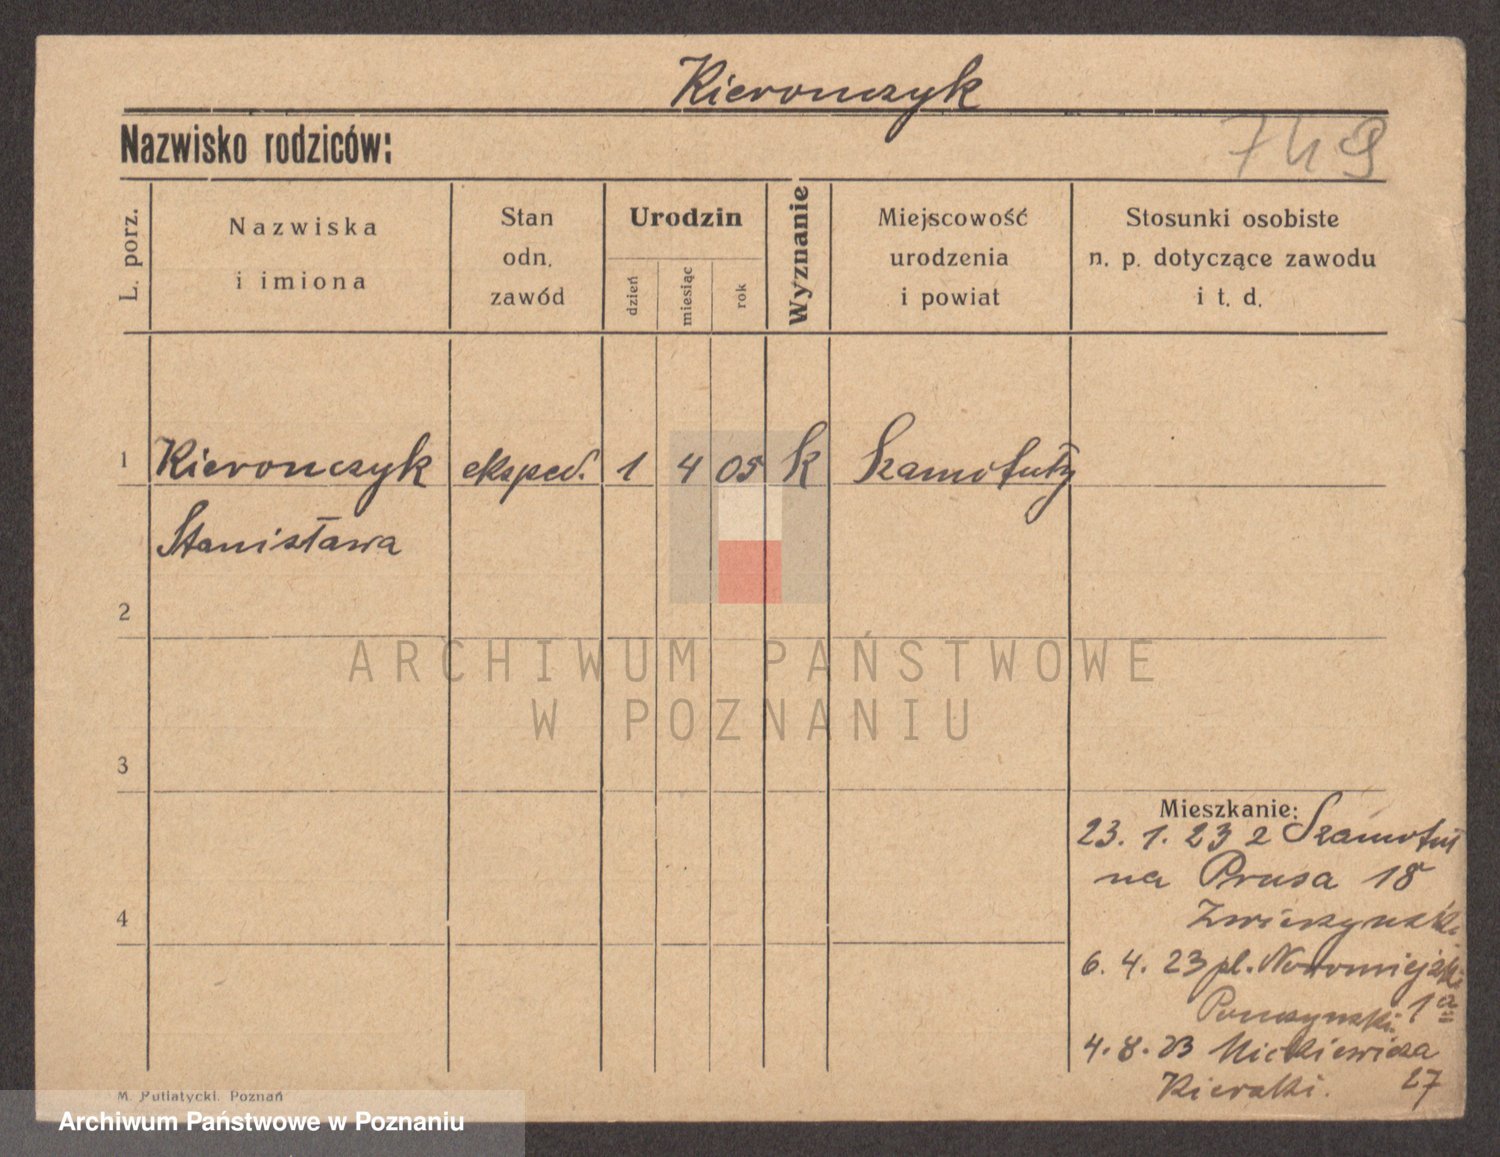 Kieronczyk
Nazwisko rodziców:
749
L. porz.
Nazwiska
i imiona
Stan
odn.
zawód
Urodzin
dzień
miesiąc
rok
Wyznanie
Miejscowość
urodzenia
i powiat
Stosunki osobiste
n. p. dotyczące zawodu
i t. d.
1 Kieronczyk eksped. 1 4 05 k Szamotuły
Stanisława
2
ARCHIWUM PAŃSTWOWE
W POZNANIU
3
Mieszkanie:
23. 1. 23 z Szamotuł
na Prusa 18
4
6. 4. 23 pl. Nowomiejski
1a
4. 8. 23 Mickiewicza
27
M. Putiatycki. Poznań
Archiwum Państwowe w Poznaniu